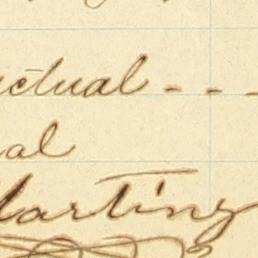 ctual - - -
al
Marting